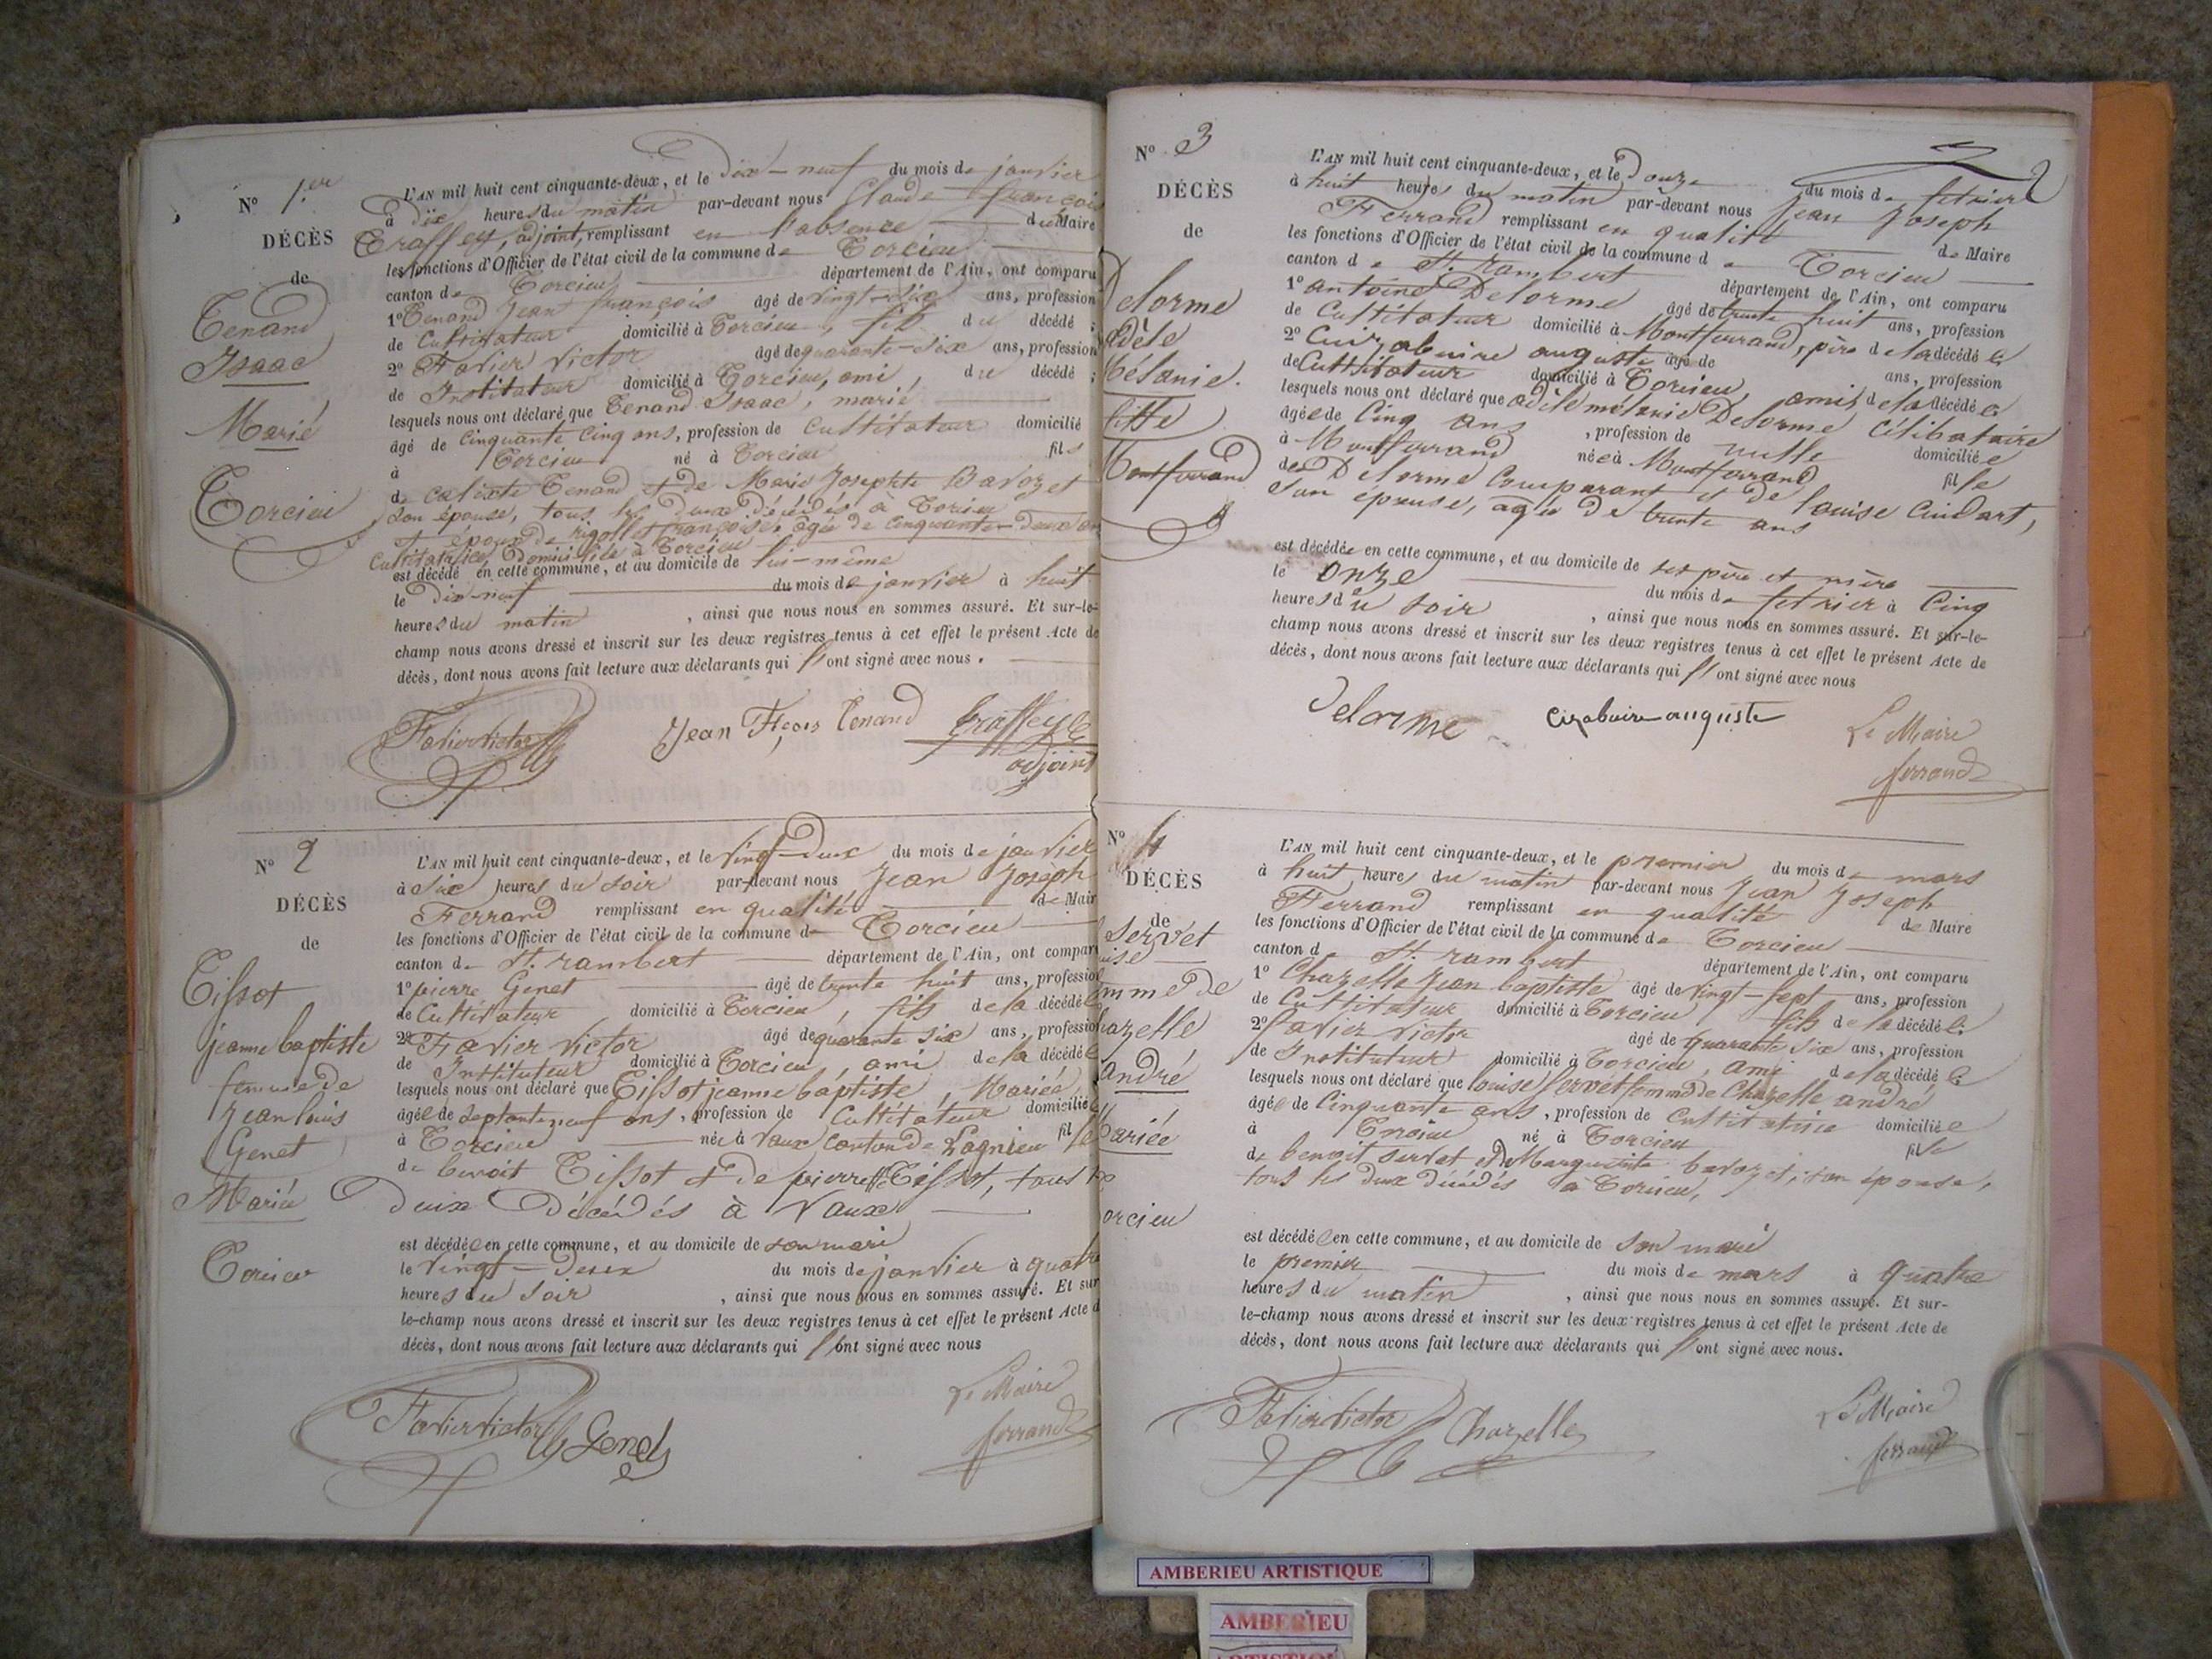 N° 1.er
DÉCÈS
de
Tenand
Isaac
Marié
Torcieu
L'AN mil huit cent cinquante-deux, et le Dix-neuf du mois de janvier
à dix heures du matin par-devant nous Claude françois
Traffey, adjoint, remplissant en l'absence du Maire
les fonctions d'Officier de l'état civil de la commune de Torcieu
canton de Torcieu département de l'Ain, ont comparu
1° Tenand Jean françois âgé de vingt-six ans, profession
de Cultivateur domicilié à Torcieu, fils du décédé ;
2° Favier Victor âgé de quarante-six ans, profession
de Instituteur domicilié à Torcieu, ami, du décédé ;
lesquels nous ont déclaré que Tenand Isaac, marié
âgé de cinquante cinq ans, profession de Cultivateur domicilié
à Torcieu né à Torcieu fils
de calixte Tenand et de Marie Josephte Bavozet
son épouse, tous les deux décédés à Torcieu
et époux de rigollet françoise, agée de cinquante-deux ans
Cultivatrice, domiciliée à Torcieu
est décédé en cette commune, et au domicile de lui-même
le dix-neuf du mois de janvier à huit
heures du matin , ainsi que nous nous en sommes assuré. Et sur-le-
champ nous avons dressé et inscrit sur les deux registres tenus à cet effet le présent Acte de
décès, dont nous avons fait lecture aux déclarants qui l'ont signé avec nous.
Favier Victor Jean Fçois Tenand Traffey
adjoint
N° 2
DÉCÈS
de
Tissot
jeanne baptiste
femme de
Jean louis
Genet
Mariée
Torcieu
L'AN mil huit cent cinquante-deux, et le vingt-deux du mois de janvier
à six heures du soir par-devant nous Jean Joseph
Ferrand remplissant en qualité de Mair
les fonctions d'Officier de l'état civil de la commune de Torcieu
canton de St. rambert département de l'Ain, ont compar
1° pierre Genet âgé de trente huit ans, profession
de Cultivateur domicilié à Torcieu, fils de la décédée
2° Favier Victor âgé de quarante six ans, profession
de Instituteur domicilié à Torcieu, ami de la décédée
lesquels nous ont déclaré que Tissot jeanne baptiste, Mariée
âgée de septante neuf ans, profession de Cultivateur domiciliée
à Torcieu née à Vaux canton de Lagnieu fille
de benoit Tissot et de pierrette Tissot, tous les
deux Décédés à Vaux
est décédée en cette commune, et au domicile de son mari
le vingt-deux du mois de janvier à quatre
heures du soir , ainsi que nous nous en sommes assuré. Et sur
le-champ nous avons dressé et inscrit sur les deux registres tenus à cet effet le présent Acte d
décès, dont nous avons fait lecture aux déclarants qui l'ont signé avec nous
Favier Victor Genet Le Maire
ferrand
2
N° 3
DÉCÈS
de
Delorme
adèle
Mélanie.
fille
Montferrand
L'AN mil huit cent cinquante-deux, et le Douze du mois de fevrier
à huit heures du matin par-devant nous Jean Joseph
Ferrand remplissant en qualité de Maire
les fonctions d'Officier de l'état civil de la commune de Torcieu
canton de St. rambert département de l'Ain, ont comparu
1° antoine Delorme âgé de trente huit ans, profession
de Cultivateur domicilié à Montferrand, père de la décédée
2° Cuizabuire auguste âgé de ans, profession
de Cultivateur domicilié à Torcieu, amis de la décédée
lesquels nous ont déclaré que adèle mélanie Delorme Célibataire
âgée de Cinq ans , profession de nulle domiciliée
à Montferrand née à Montferrand fille
de Delorme Comparant et de louise Cuidart,
son épouse, agée de trente ans
est décédée en cette commune, et au domicile de ses père et mère
le onze du mois de fevrier à Cinq
heures du soir , ainsi que nous nous en sommes assuré. Et sur-le-
champ nous avons dressé et inscrit sur les deux registres tenus à cet effet le présent Acte de
décès, dont nous avons fait lecture aux déclarants qui l'ont signé avec nous
Delorme cizabuire auguste Le Maire
ferrand
N° 4
DÉCÈS
de
Servet
ise
mme de
hazelle
andré
Mariée
orcieu
L'AN mil huit cent cinquante-deux, et le premier du mois de mars
à huit heures du matin par-devant nous Jean Joseph
Ferrand remplissant en qualité de Maire
les fonctions d'Officier de l'état civil de la commune de Torcieu
canton de St. rambert département de l'Ain, ont comparu
1° Chazelle Jean baptiste âgé de vingt-sept ans, profession
de Cultivateur domicilié à Torcieu fils de la décédée
2° favier Victor âgé de quarante six ans, profession
de Instituteur domicilié à Torcieu, ami de la décédée
lesquels nous ont déclaré que louise servet femme de Chazelle andré
âgée de Cinquante ans, profession de Cultivatrice domiciliée
à Torcieu né à Torcieu fille
de benoit servet et de Marguerite bavozet, son épouse,
tous les deux décédés à Torcieu,
est décédée en cette commune, et au domicile de son mari
le premier du mois de mars à quatre
heures du matin , ainsi que nous nous en sommes assuré. Et sur-
le-champ nous avons dressé et inscrit sur les deux registres tenus à cet effet le présent Acte de
décès, dont nous avons fait lecture aux déclarants qui l'ont signé avec nous.
Favier Victor Chazelle Le Maire
ferrand
AMBERIEU ARTISTIQUE
AMBERIEU
ARTISTIQUE